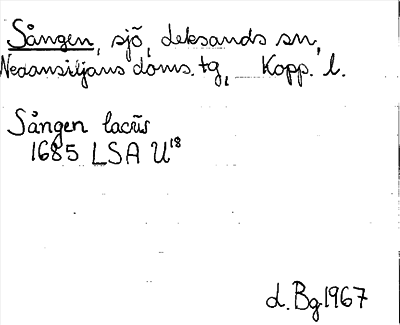 Sången, sjö, Leksands sn,
Nedansiljans doms. tg, Kopp. l.
Sången lacūs
1685 LSA U18
L. Bg 1967